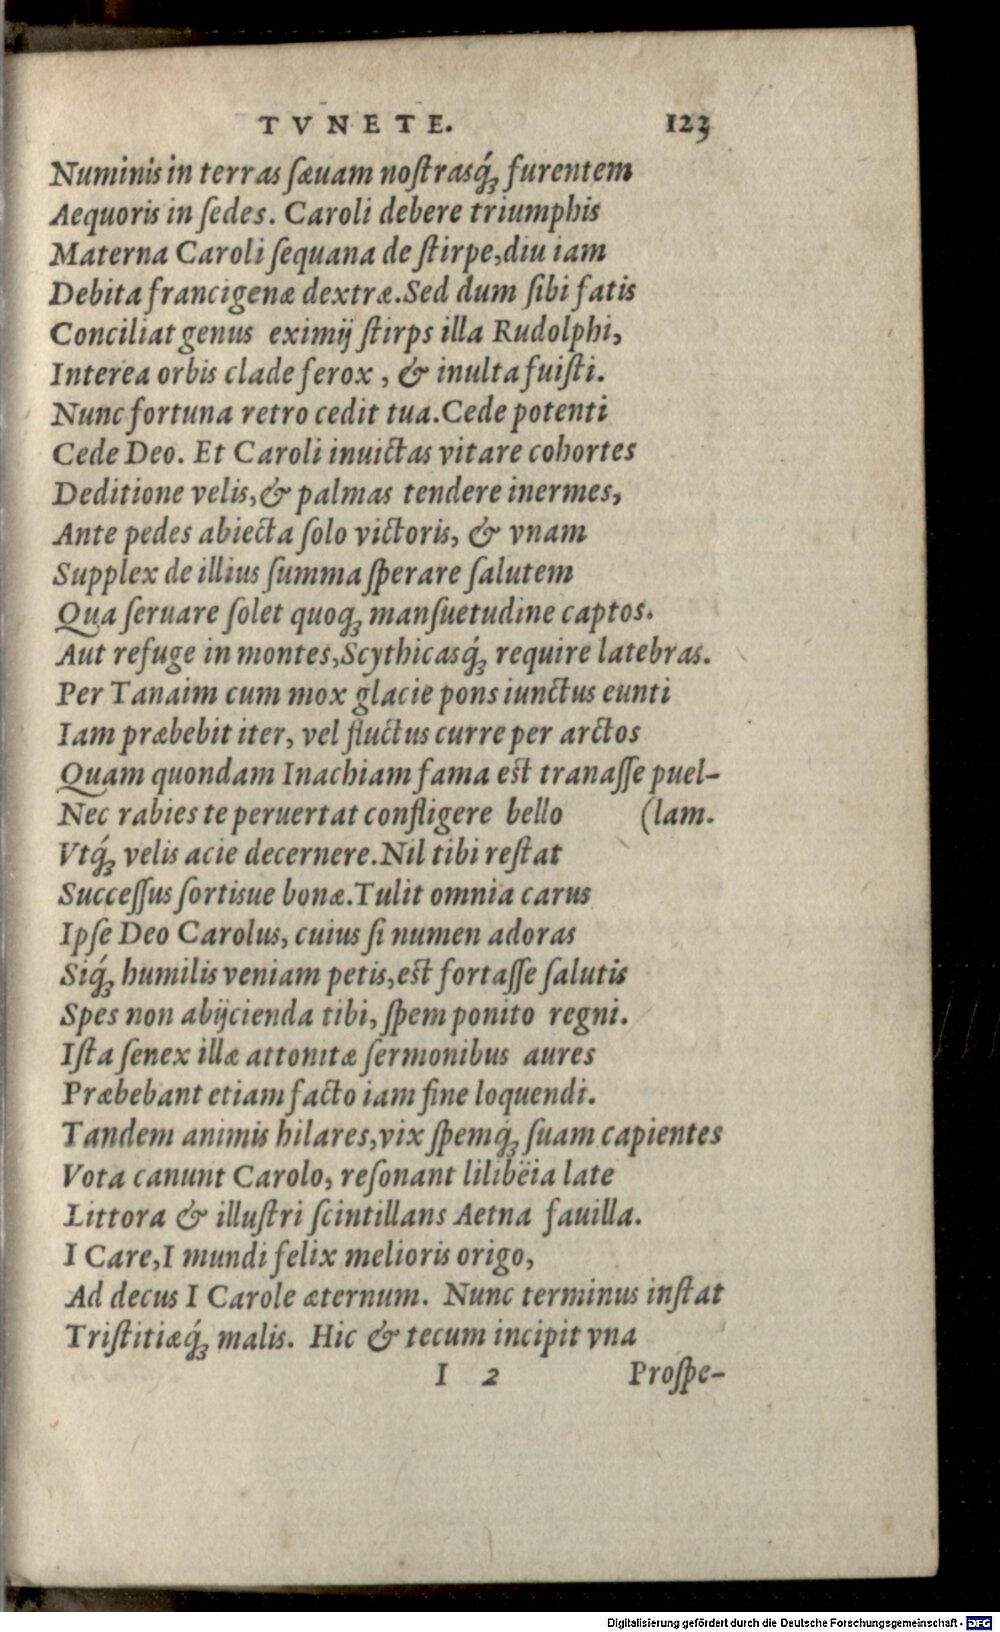 TVNETE. 123
Numinis in terras sæuam nostrasq́; furentem
Aequoris in sedes. Caroli debere triumphis
Materna Caroli sequana de stirpe, diu iam
Debita francigenæ dextræ. Sed dum sibi fatis
Conciliat genus eximij stirps illa Rudolphi,
Interea orbis clade ferox, & inulta fuisti.
Nunc fortuna retro cedit tua. Cede potenti
Cede Deo. Et Caroli inuictas vitare cohortes
Deditione velis, & palmas tendere inermes,
Ante pedes abiecta solo victoris, & vnam
Supplex de illius summa sperare salutem
Qua seruare solet quoq; mansuetudine captos.
Aut refuge in montes, Scythicasq́; require latebras.
Per Tanaim cum mox glacie pons iunctus eunti
Iam præbebit iter, vel fluctus curre per arctos
Quam quondam Inachiam fama est tranasse puel-
Nec rabies te peruertat confligere bello (lam.
Vtq́; velis acie decernere. Nil tibi restat
Successus sortisue bonæ. Tulit omnia carus
Ipse Deo Carolus, cuius si numen adoras
Siq́; humilis veniam petis, est fortasse salutis
Spes non abijcienda tibi, spem ponito regni.
Ista senex illæ attonitæ sermonibus aures
Præbebant etiam facto iam fine loquendi.
Tandem animis hilares, vix spemq́; suam capientes
Vota canunt Carolo, resonant lilibëia late
Littora & illustri scintillans Aetna fauilla.
I Care, I mundi felix melioris origo,
Ad decus I Carole æternum. Nunc terminus instat
Tristitiæq́; malis. Hic & tecum incipit vna
I 2 Prospe-
Digitalisierung gefördert durch die Deutsche Forschungsgemeinschaft - DFG